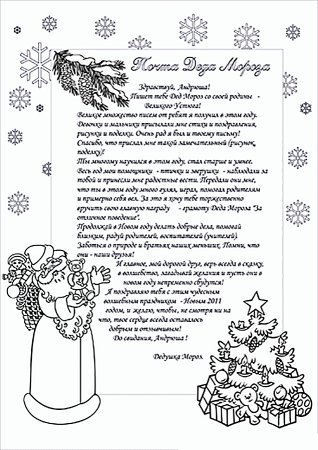 Почта Деда Мороза
Здравствуй, Андрюша!
Пишет тебе Дед Мороз со своей родины -
Великого Устюга!
Великое множество писем от ребят я получил в этом году.
Девочки и мальчики присылали мне стихи и поздравления,
рисунки и поделки. Очень рад я был и твоему письму!
Спасибо, что прислал мне такой замечательный (рисунок,
поделку)!
Ты многому научился в этом году, стал старше и умнее.
Весь год мои помощники - птички и зверушки - наблюдали за
тобой и принесли мне радостные вести. Передали они мне,
что ты в этом году много гулял, играл, помогал родителям
и примерно себя вел. За это я хочу тебе торжественно
вручить свою главную награду - грамоту Деда Мороза "За
отличное поведение".
Продолжай в Новом году делать добрые дела, помогай
близким, радуй родителей, воспитателей (учителей).
Заботься о природе и братьях наших меньших. Помни, что
они - наши друзья!
И главное, мой дорогой друг, верь всегда в сказку,
в волшебство, загадывай желания и пусть они в
новом году непременно сбудутся!
Я поздравляю тебя с этим чудесным
волшебным праздником - Новым 2011
годом, и желаю, чтобы, не смотря ни на
что, твое сердце всегда оставалось
добрым и отзывчивым!
До свидания, Андрюша!
Дедушка Мороз.